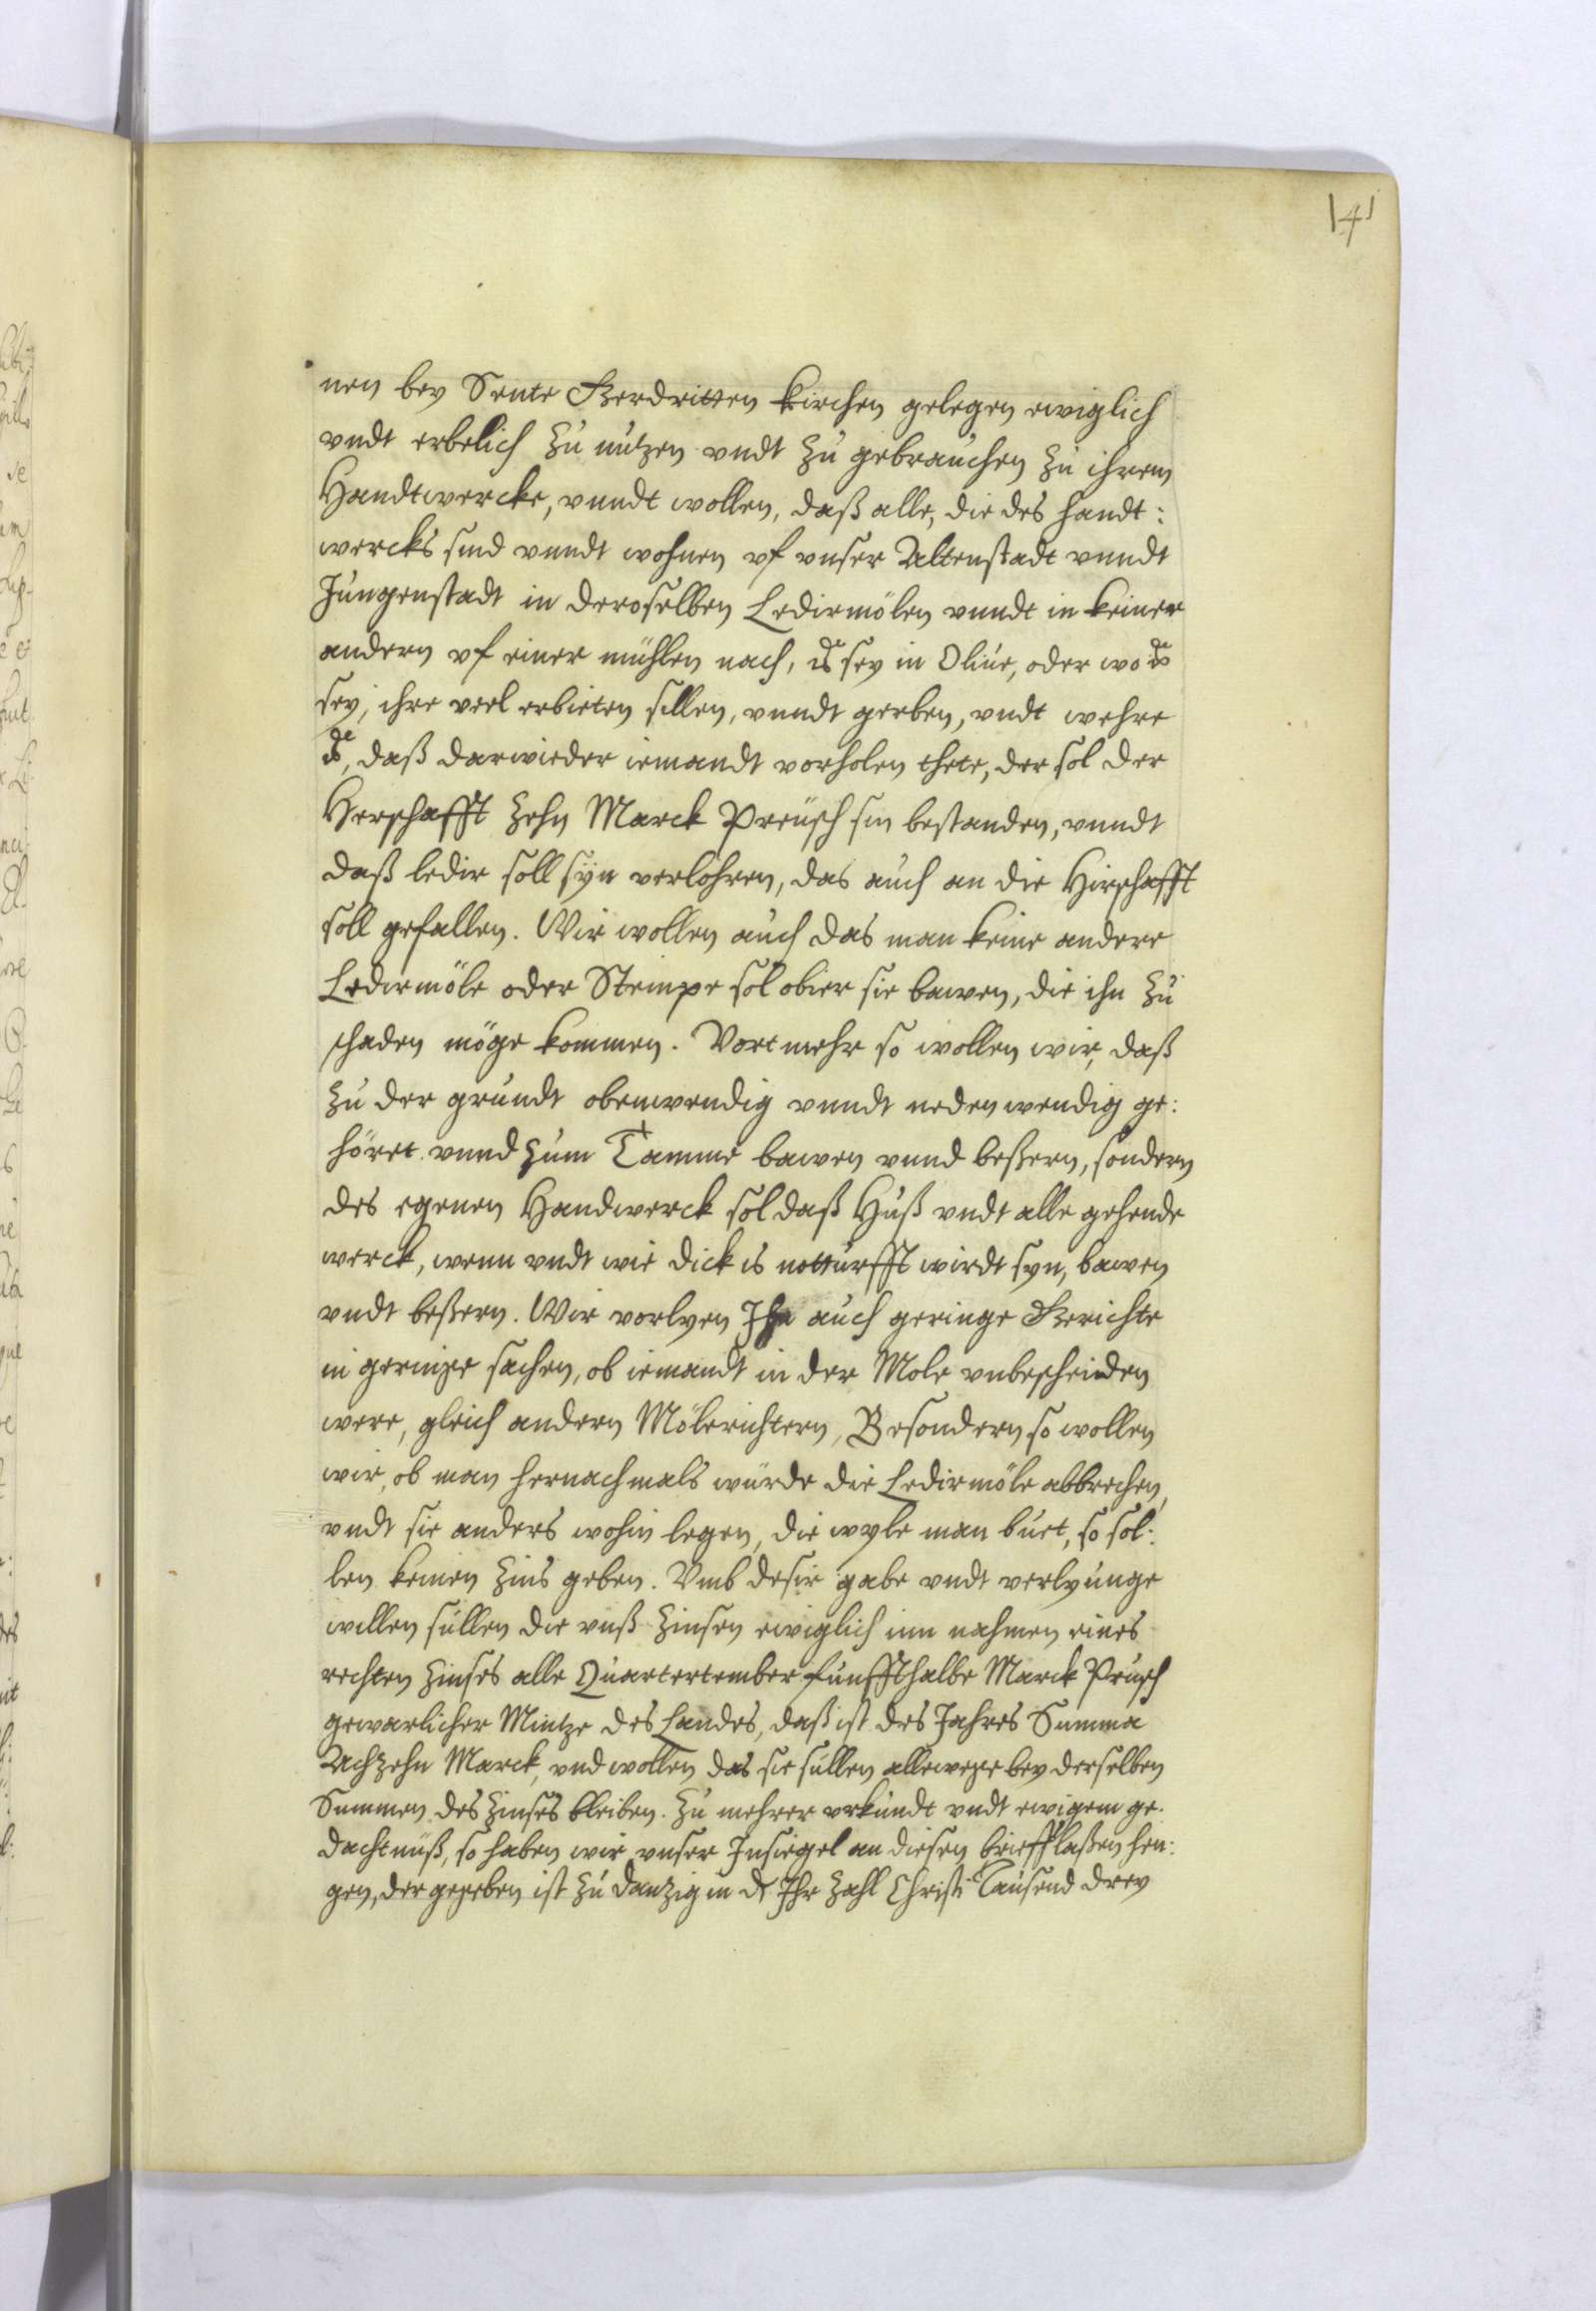 141
nen bey Sente Gerdritten Kirchen gelegen ewiglich
vndt erbelich zu nutzen vndt zu gebrauchen zu ihrem
Handtwercke, vnndt wollen, daß alle, die des handt:
wercks sind vnndt wohnen vf vnser Altenstadt vnndt
Jungenstadt in deroselben Ledirmölen vnndt in keiner
andern vf einer mühlen nach, is sey in Oliue, oder wo is
sey, ihre veel erbieten sellen, vnndt gerben, vndt wehre
is, daß darwieder iemandt vorholen thete, der sol der
Herschafft zehn Marck Preüsch sin bestanden, vnndt
daß ledir soll syn verlohren, das auch an die Hirschafft
soll gefallen. Wir wollen auch das man keine andere
Ledirmöle oder Stempe sol obier sie bawen, die ihn zu
schaden möge kommen. Vort mehr so wollen wir, daß
zu der grundt obenwendig vnndt nedenwendig ge:
höret vnnd zum Tamme bawen vnnd beßern, sondern
des egenen Handwerck sol daß Huß vndt alle gehende
werck, wenn vndt wie dick is notturfft wirdt syn, bawen
vndt beßern. Wir vorlyen Ihn auch geringe Gerichte
in geringe sachen, ob iemandt in der Mole vnbescheiden
were, gleich andern Mölerichtern, Besondern so wollen
wir, ob man hernachmals würde die Ledirmöle abbrechen,
vndt sie anders wohin legen, die wyle man buet, so sol:
len keinen Zins geben. Vmb desir gabe vndt verlyunge
willen süllen die vnß Zinsen ewiglich inn nahmen eines
rechten Zinses alle Quartertember funffthalbe Marck Prüsch
gewarlicher Mintze des Landes, daß ist des Jahres Summa
Achzehn Marck, vnd wollen das sie süllen allewege bey derselben
Summen des Zinses bleiben. Zu mehrer vrkundt vndt ewigem ge:
dachtnüß, so haben wir vnser Insiegel an diesen brieff laßen hen:
gen, der gegeben ist zu Danzig in der Ihr Zahl Christi Tausend drey